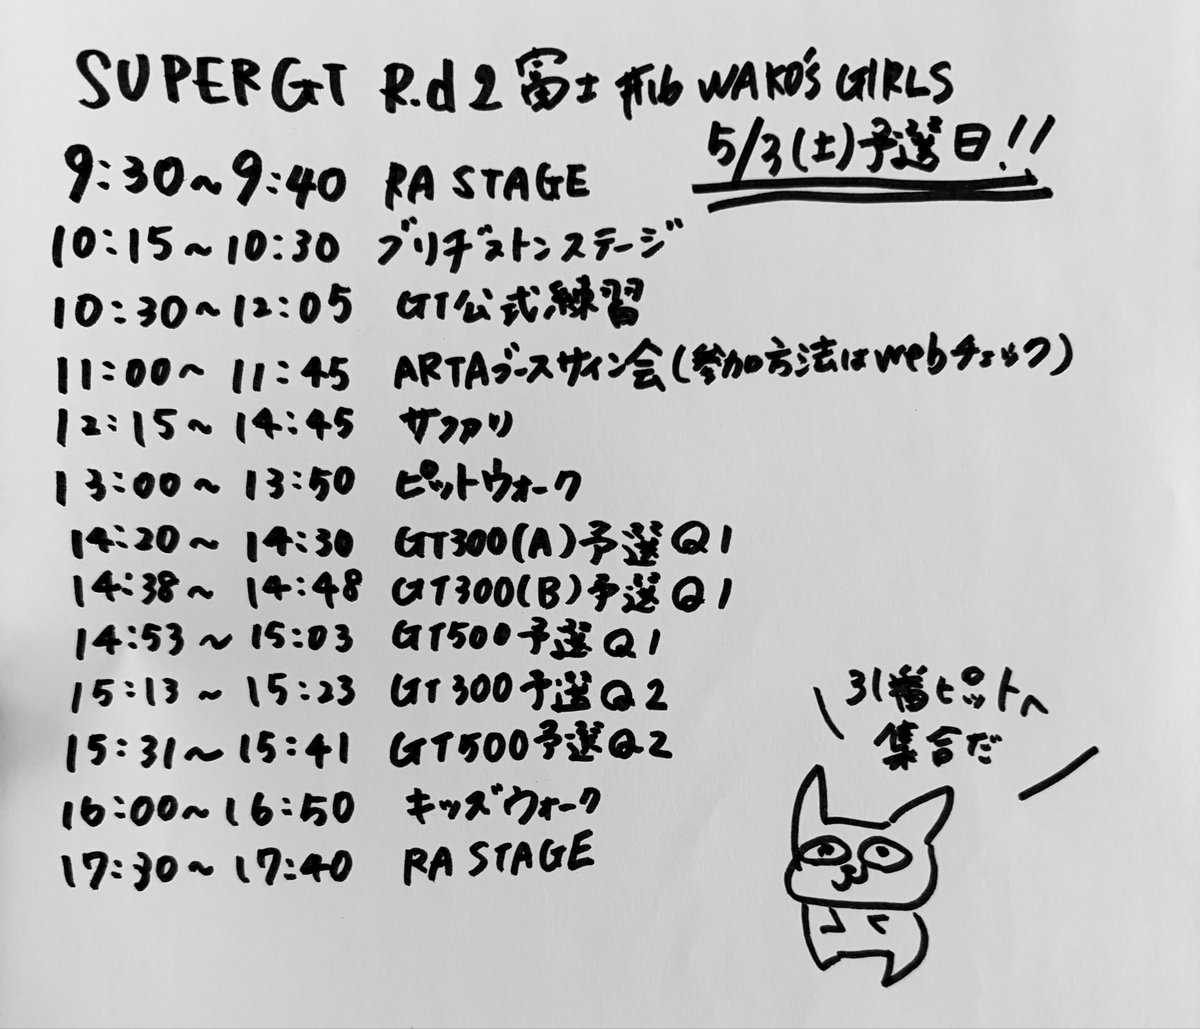 SUPER GT R.d2 富士 #16 WAKO'S GIRLS
5/3(土)予選日!!
9:30~9:40 RA STAGE
10:15~10:30 ブリヂストンステージ
10:30~12:05 GT公式練習
11:00~11:45 ARTAブースサイン会(参加方法はwebチェック)
12:15~14:45 サファリ
13:00~13:50 ピットウォーク
14:20~14:30 GT300(A)予選Q1
14:38~14:48 GT300(B)予選Q1
14:53~15:03 GT500予選Q1
15:13~15:23 GT300予選Q2
15:31~15:41 GT500予選Q2
16:00~16:50 キッズウォーク
17:30~17:40 RA STAGE
31番ピットへ
集合だ